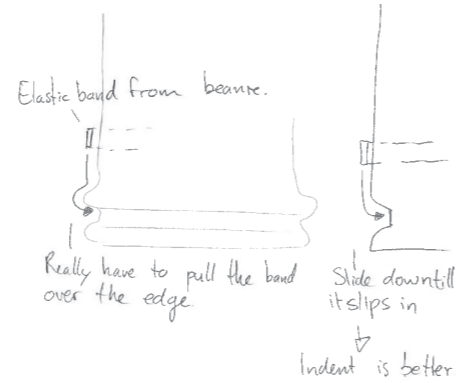 Elastic band from beanre.
Really have to pull the band
over the edge.
Slide downtill
it slips in
Indent is better